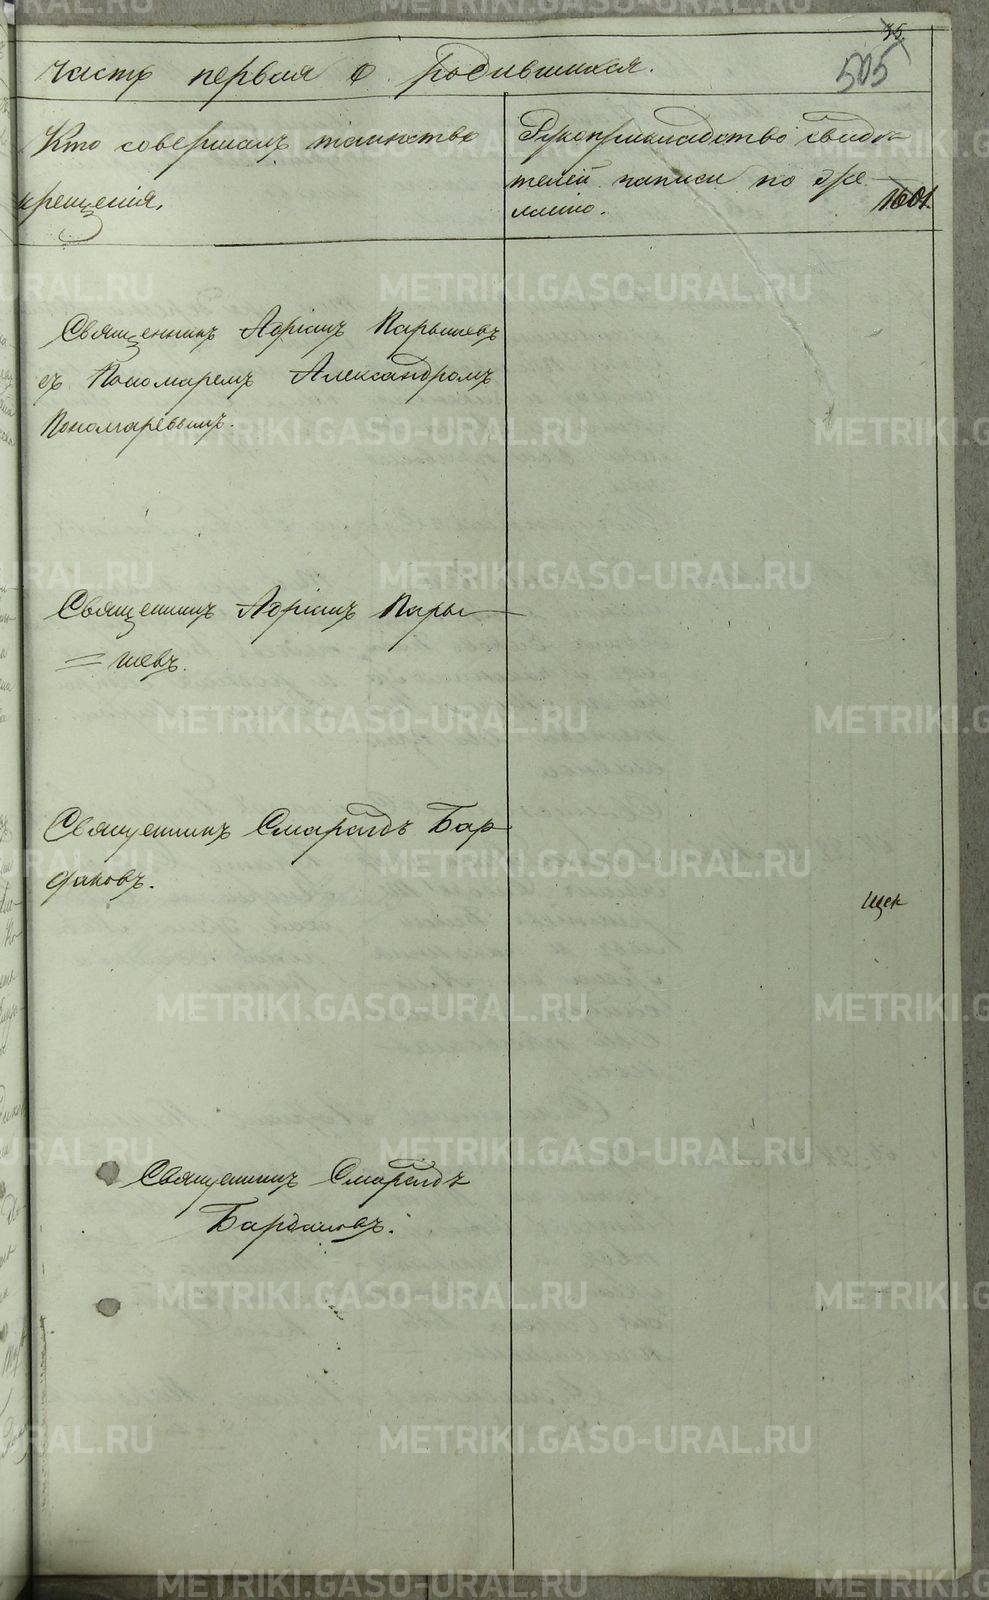 35.
505
Часть первая о родившихся.
Кто совершалъ таинство
крещенія.
Рукоприкладство свидѣ
телей записи по же
ланію.
1601.
Священникъ Адріанъ Парышевъ
съ Пономаремъ Александромъ
Пономаревымъ.
Священникъ Адріанъ Пары
= шевъ.
Священникъ Смарагдъ Бар
даковъ.
Священникъ Смарагдъ
Бардаковъ.
METRIKI.GASO-URAL.RU